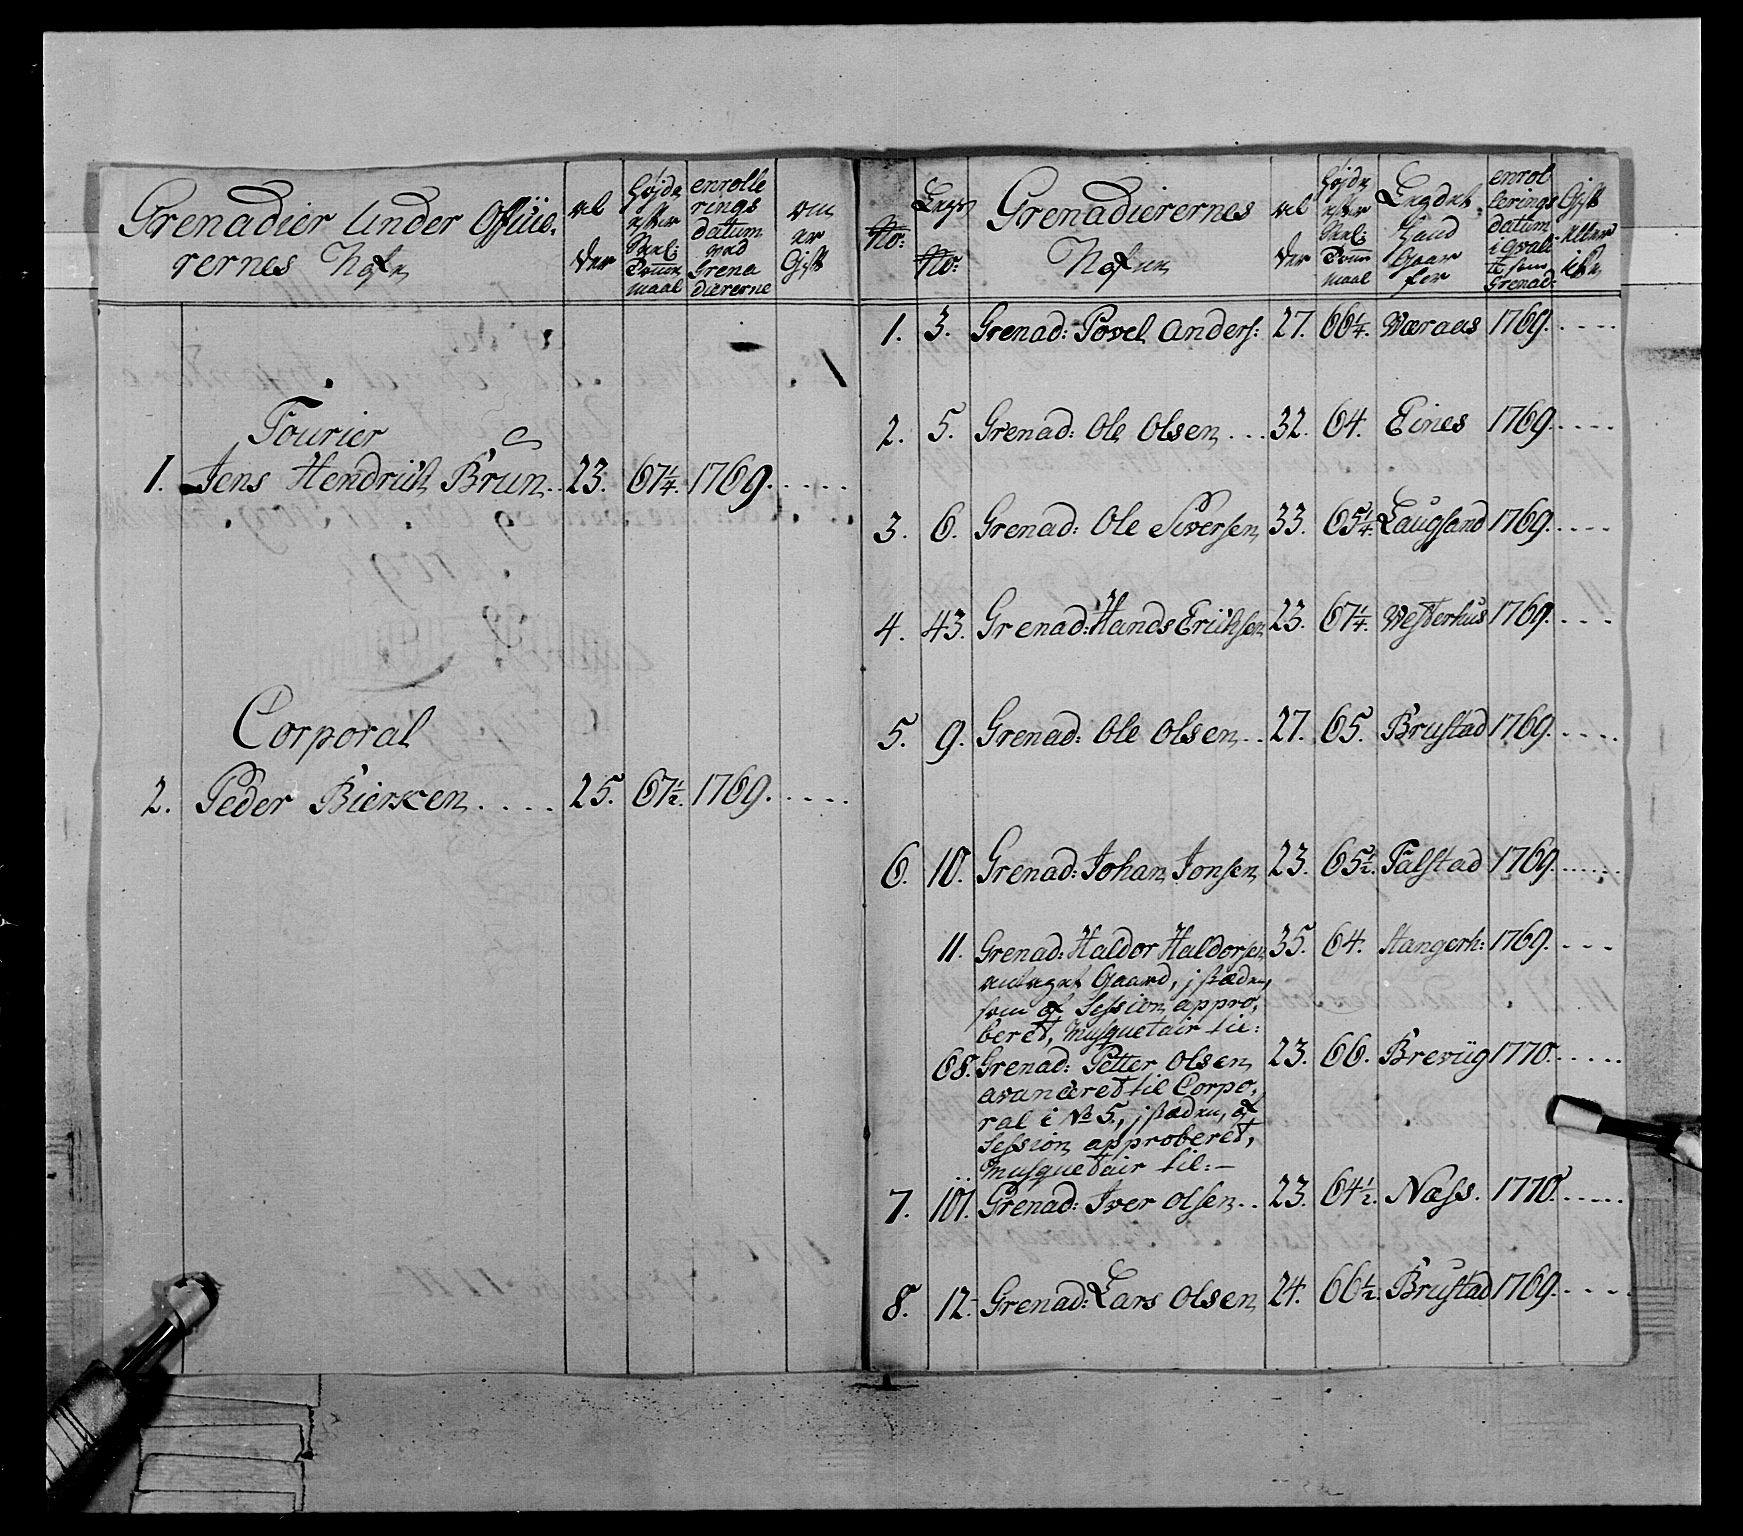 Grenadier Under Officie,
rernes Nafn
al
der
Højde
efter
Siel:
Tomme
maal
enrolle
rings
datum
ved
Grena
diererne
om
er
Gift
Fourier
1. Jens Hendrich Brun.. 23. 67¼. 1769. . . . .
Corporal
2. Peder Biercken . . . . 25. 67½. 1769. . . . .
No:
Legs
No:
Grenadierernes
Nafne
al
der
Højde
efter
Siel:
Tomme
maal
Legdet
Gaar
for
enrol
lerings
datum
i qvali
te som
Grenad:
Gift
eller
icke
1. 3. Grenad: Povel Anders: 27. 66¼. Væraas 1769. . . . .
2. 5. Grenad: Ole Olsen . . . 32. 64. Eines 1769. . . . .
3. 6. Grenad: Ole Siversen 33. 65¼. Laugsand 1769. . . . .
4. 43. Grenad: Hands Erichsen 23. 67¼. Westerhus 1769. . . .
5. 9. Grenad: Ole Olsen . . 27. 65. Brustad 1769. . . . .
6. 10. Grenad: Johan Jonsen 23. 65½. Falstad 1769. . . . .
11. Grenad: Haldor Haldorsen 35. 64. Stangerh: 1769. . . .
antaget Gaard, i stæden,
som af Session appro,
beret, Musquetair til:
68. Grenad: Petter Olsen 23. 66. Brevüg 1770. . . . .
avanceret til Corpo,
ral i No 5., i stæden, af
Session approberet,
Musquetair til: —
7. 101. Grenad: Iver Olsen . . 23. 64½. Næss. 1770. . . . .
8. 12. Grenad: Lars Olsen 24. 66½. Brustad 1769. . . . .